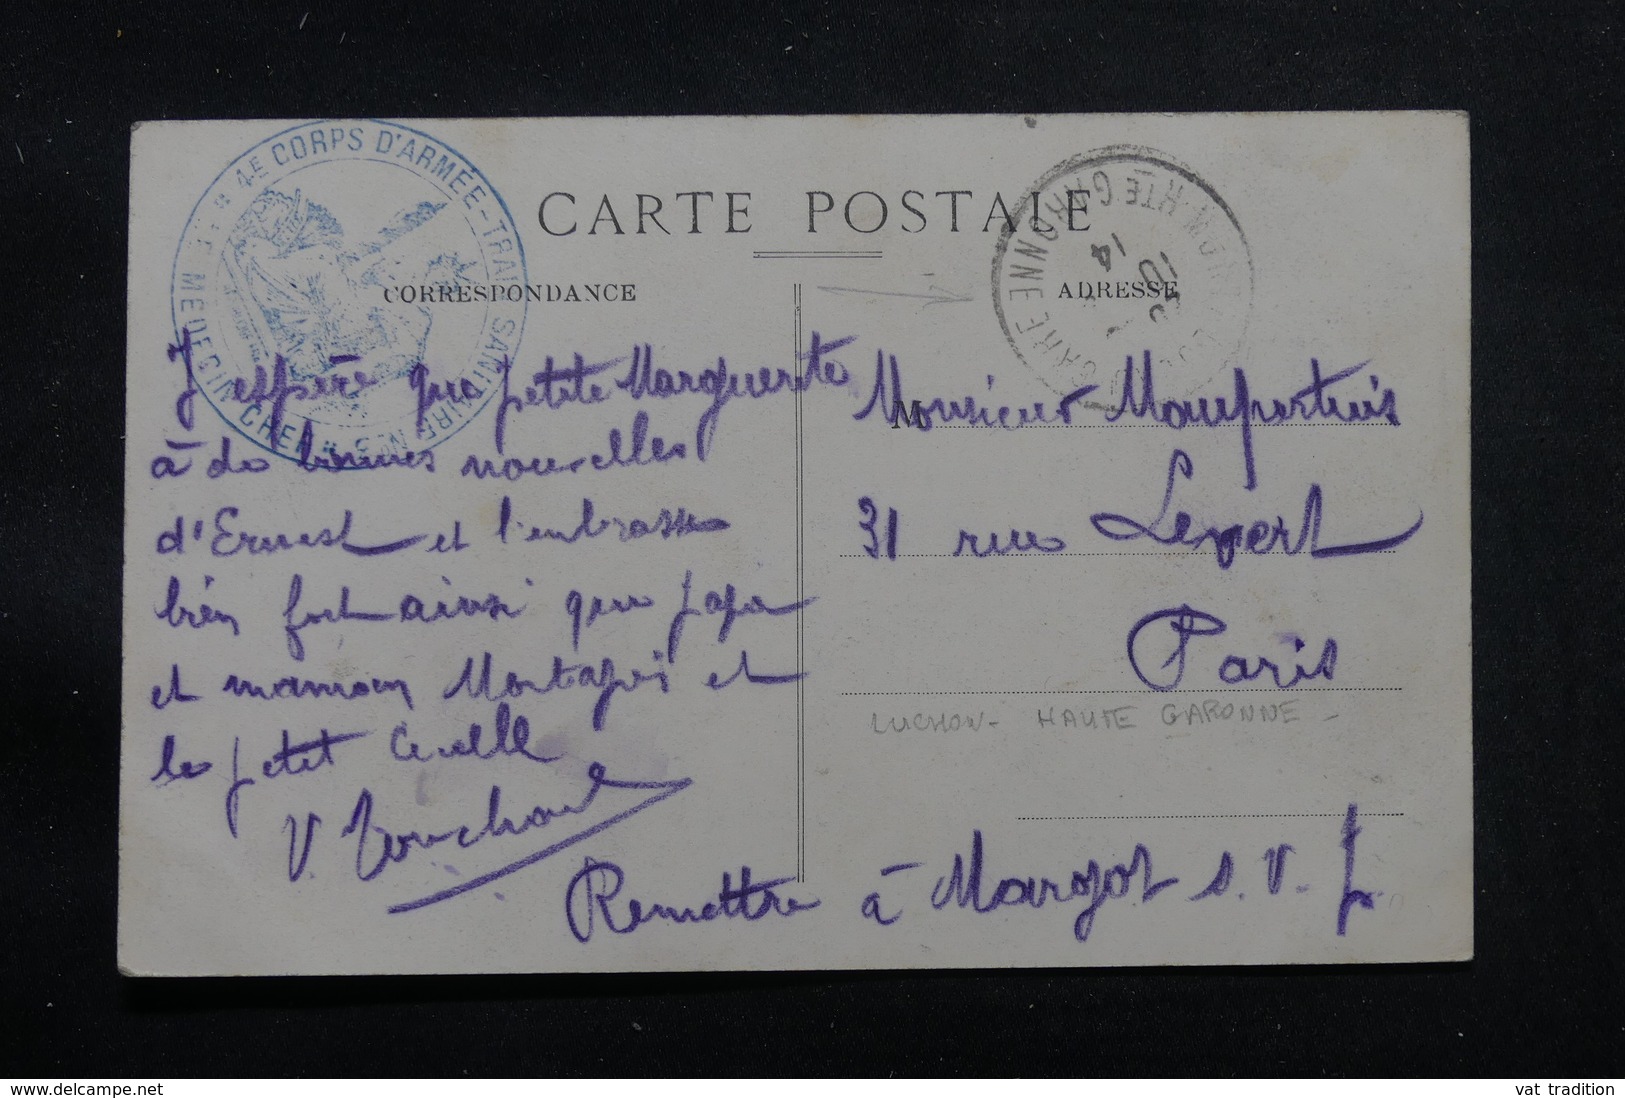 4E CORPS D'ARMÉE - TRAIN SANITAIRE N° 5
MÉDECIN CHEF
CARTE POSTALE
CORRESPONDANCE
ADRESSE
GARE HTE GARONNE
14
J'espère que petite Marguerite
à de bonnes nouvelles
d'Ernest et l'embrasse
bien fort ainsi que papa
et maman et
le petit
V. Touchard
M
Monsieur Maupertuis
31 rue Levert
Paris
LUCHON - HAUTE GARONNE -
Remettre à Margot s. v. p.
delcampe.net
vat tradition